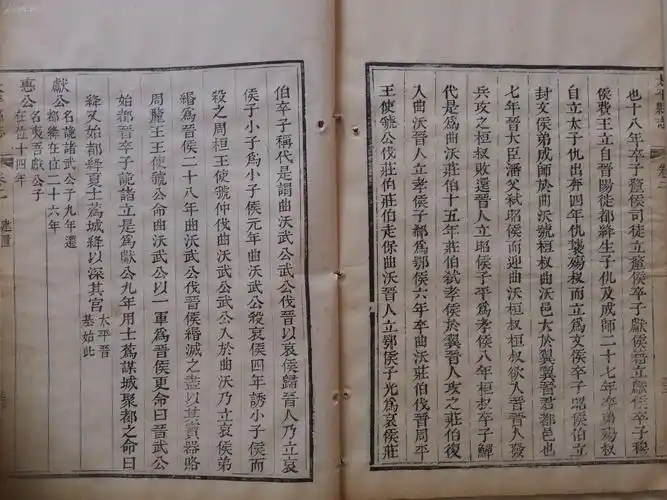 也十八年卒子釐侯司徒立釐侯卒子獻侯籍立獻侯卒子穆
侯費王立自晉陽徙都絳生子仇及成師二十七年卒弟殤叔
自立太子仇出奔四年仇襲殤叔而立為文侯卒子昭侯伯立
封文侯弟成師於曲沃號桓叔曲沃邑大於翼翼晉君都邑也
七年晉大臣潘父弒昭侯而迎曲沃桓叔桓叔欲入晉晉人發
兵攻之桓叔敗還晉人立昭侯子平為孝侯八年桓叔卒子鱓
代是為曲沃莊伯十五年莊伯弒孝侯於翼晉人攻之莊伯復
入曲沃晉人立孝侯子都為鄂侯六年卒曲沃莊伯伐晉周平
王使虢公伐莊伯莊伯走保曲沃晉人立鄂侯子光為哀侯莊
伯卒子稱代是謂曲沃武公武公伐晉以哀侯歸晉人乃立哀
侯子小子為小子侯元年曲沃武公殺哀侯四年誘小子侯而
殺之周桓王使虢仲伐曲沃武公武公入於曲沃乃立哀侯弟
緡為晉侯二十八年曲沃武公伐晉侯緡滅之盡以其寶器賂
周釐王王使虢公命曲沃武公以一軍為晉侯更命曰晉武公
始都晉卒子詭諸立是為獻公九年用士蒍謀城聚都之命曰
絳又始都絳夏士蒍城絳以深其宮太平晉基始此
獻公名詭諸武公子九年遷都絳在位二十六年
惠公名夷吾獻公子在位十四年
太平縣志
卷二
建置